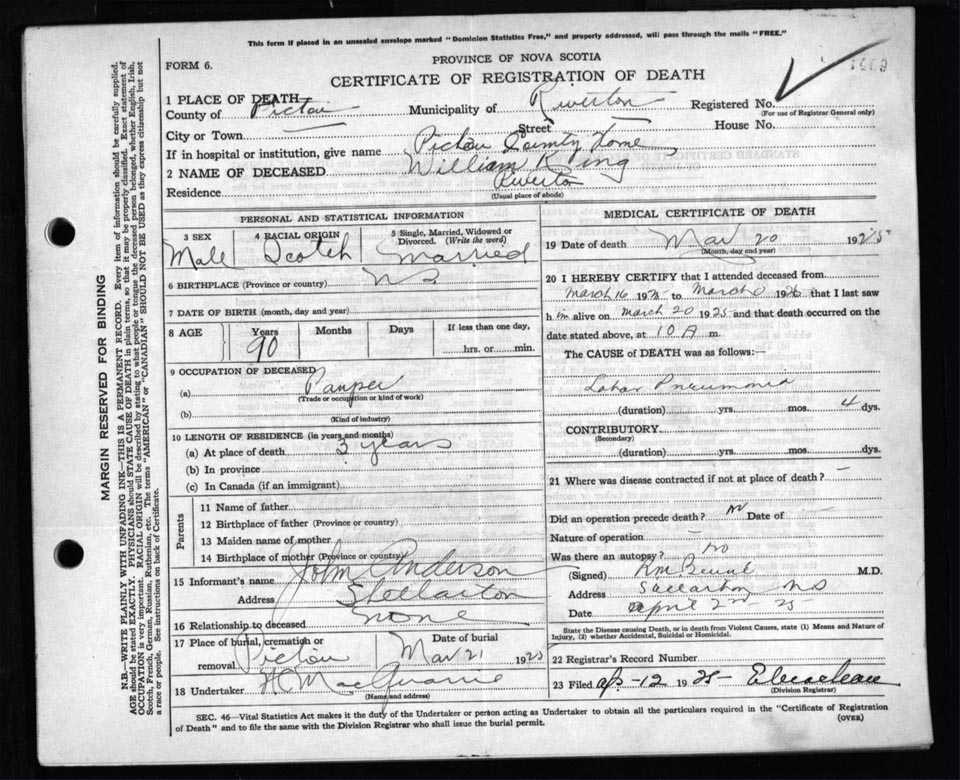 This form if placed in an unsealed envelope marked "Dominion Statistics Free," and properly addressed, will pass through the mails "FREE."
FORM 6.
PROVINCE OF NOVA SCOTIA
CERTIFICATE OF REGISTRATION OF DEATH
1 PLACE OF DEATH
County of Pictou Municipality of Riverton Registered No.
(For use of Registrar General only)
City or Town Street House No.
If in hospital or institution, give name Pictou County Home
2 NAME OF DECEASED William King
Residence Riverton
(Usual place of abode)
PERSONAL AND STATISTICAL INFORMATION
3 SEX 4 RACIAL ORIGIN 5 Single, Married, Widowed or Divorced. (Write the word)
Male Scotch Married
6 BIRTHPLACE (Province or country) N S
7 DATE OF BIRTH (month, day and year)
8 AGE Years Months Days If less than one day,
90 hrs. or min.
9 OCCUPATION OF DECEASED
(a) Pauper
(Trade or occupation or kind of work)
(b)
(Kind of industry)
10 LENGTH OF RESIDENCE (in years and months)
(a) At place of death 3 years
(b) In province
(c) In Canada (if an immigrant)
Parents
11 Name of father
12 Birthplace of father (Province or country)
13 Maiden name of mother
14 Birthplace of mother (Province or country)
15 Informant's name John Anderson
Address Stellarton
16 Relationship to deceased none
17 Place of burial, cremation or removal Pictou Date of burial Mar 21 1925
18 Undertaker H. MacQuarrie
(Name and address)
MEDICAL CERTIFICATE OF DEATH
19 Date of death Mar 20 1925
(Month, day and year)
20 I HEREBY CERTIFY that I attended deceased from
March 16 1925 to March 1925 that I last saw
h im alive on March 20 1925 and that death occurred on the
date stated above, at 10 A m.
The CAUSE of DEATH was as follows:—
Lobar Pneumonia
(duration) yrs. mos. 4 dys.
CONTRIBUTORY
(Secondary)
(duration) yrs. mos. dys.
21 Where was disease contracted if not at place of death? —
Did an operation precede death? no Date of —
Nature of operation
Was there an autopsy? no
(Signed) M.D.
Address Stellarton NS
Date April 2nd - 25
State the Disease causing Death, or in death from Violent Causes, state (1) Means and Nature of Injury, (2) whether Accidental, Suicidal or Homicidal.
22 Registrar's Record Number
23 Filed Apr - 12 1925
(Division Registrar)
SEC. 46—Vital Statistics Act makes it the duty of the Undertaker or person acting as Undertaker to obtain all the particulars required in the "Certificate of Registration
of Death" and to file the same with the Division Registrar who shall issue the burial permit.
(OVER)
MARGIN RESERVED FOR BINDING
N.B.—WRITE PLAINLY WITH UNFADING INK—THIS IS A PERMANENT RECORD. Every item of information should be carefully supplied.
AGE should be stated EXACTLY. PHYSICIANS should STATE CAUSE OF DEATH in plain terms, so that it may be properly classified. Exact statement of
OCCUPATION is very important. RACIAL ORIGIN will be described by stating to what people or tongue the deceased person belonged, whether English, Irish,
Scotch, French, German, Russian, Ruthenian, etc. The terms "AMERICAN" or "CANADIAN" SHOULD NOT BE USED as they express citizenship but not
a race or people. See instructions on back of Certificate.